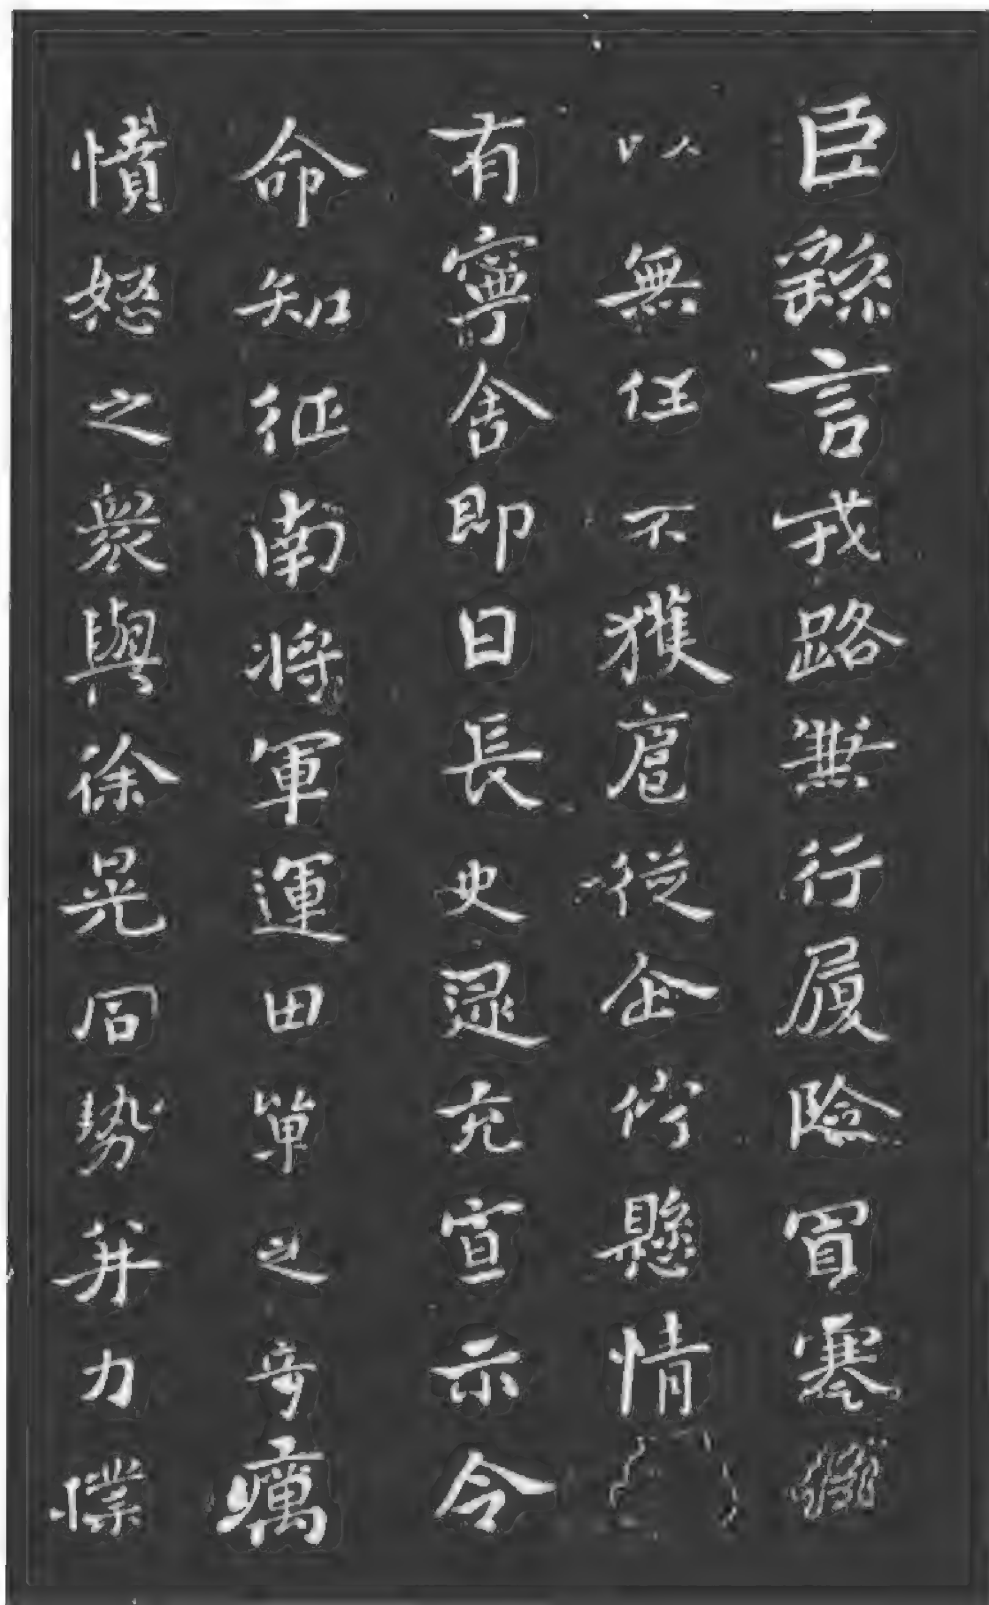 臣繇言戎路兼行履險冒寒
以無任不獲扈從企佇懸情
有寧舍即日長史逯充宣示令
命知征南将軍運田單之奇厲
憤怒之衆與徐晃同勢并力撲